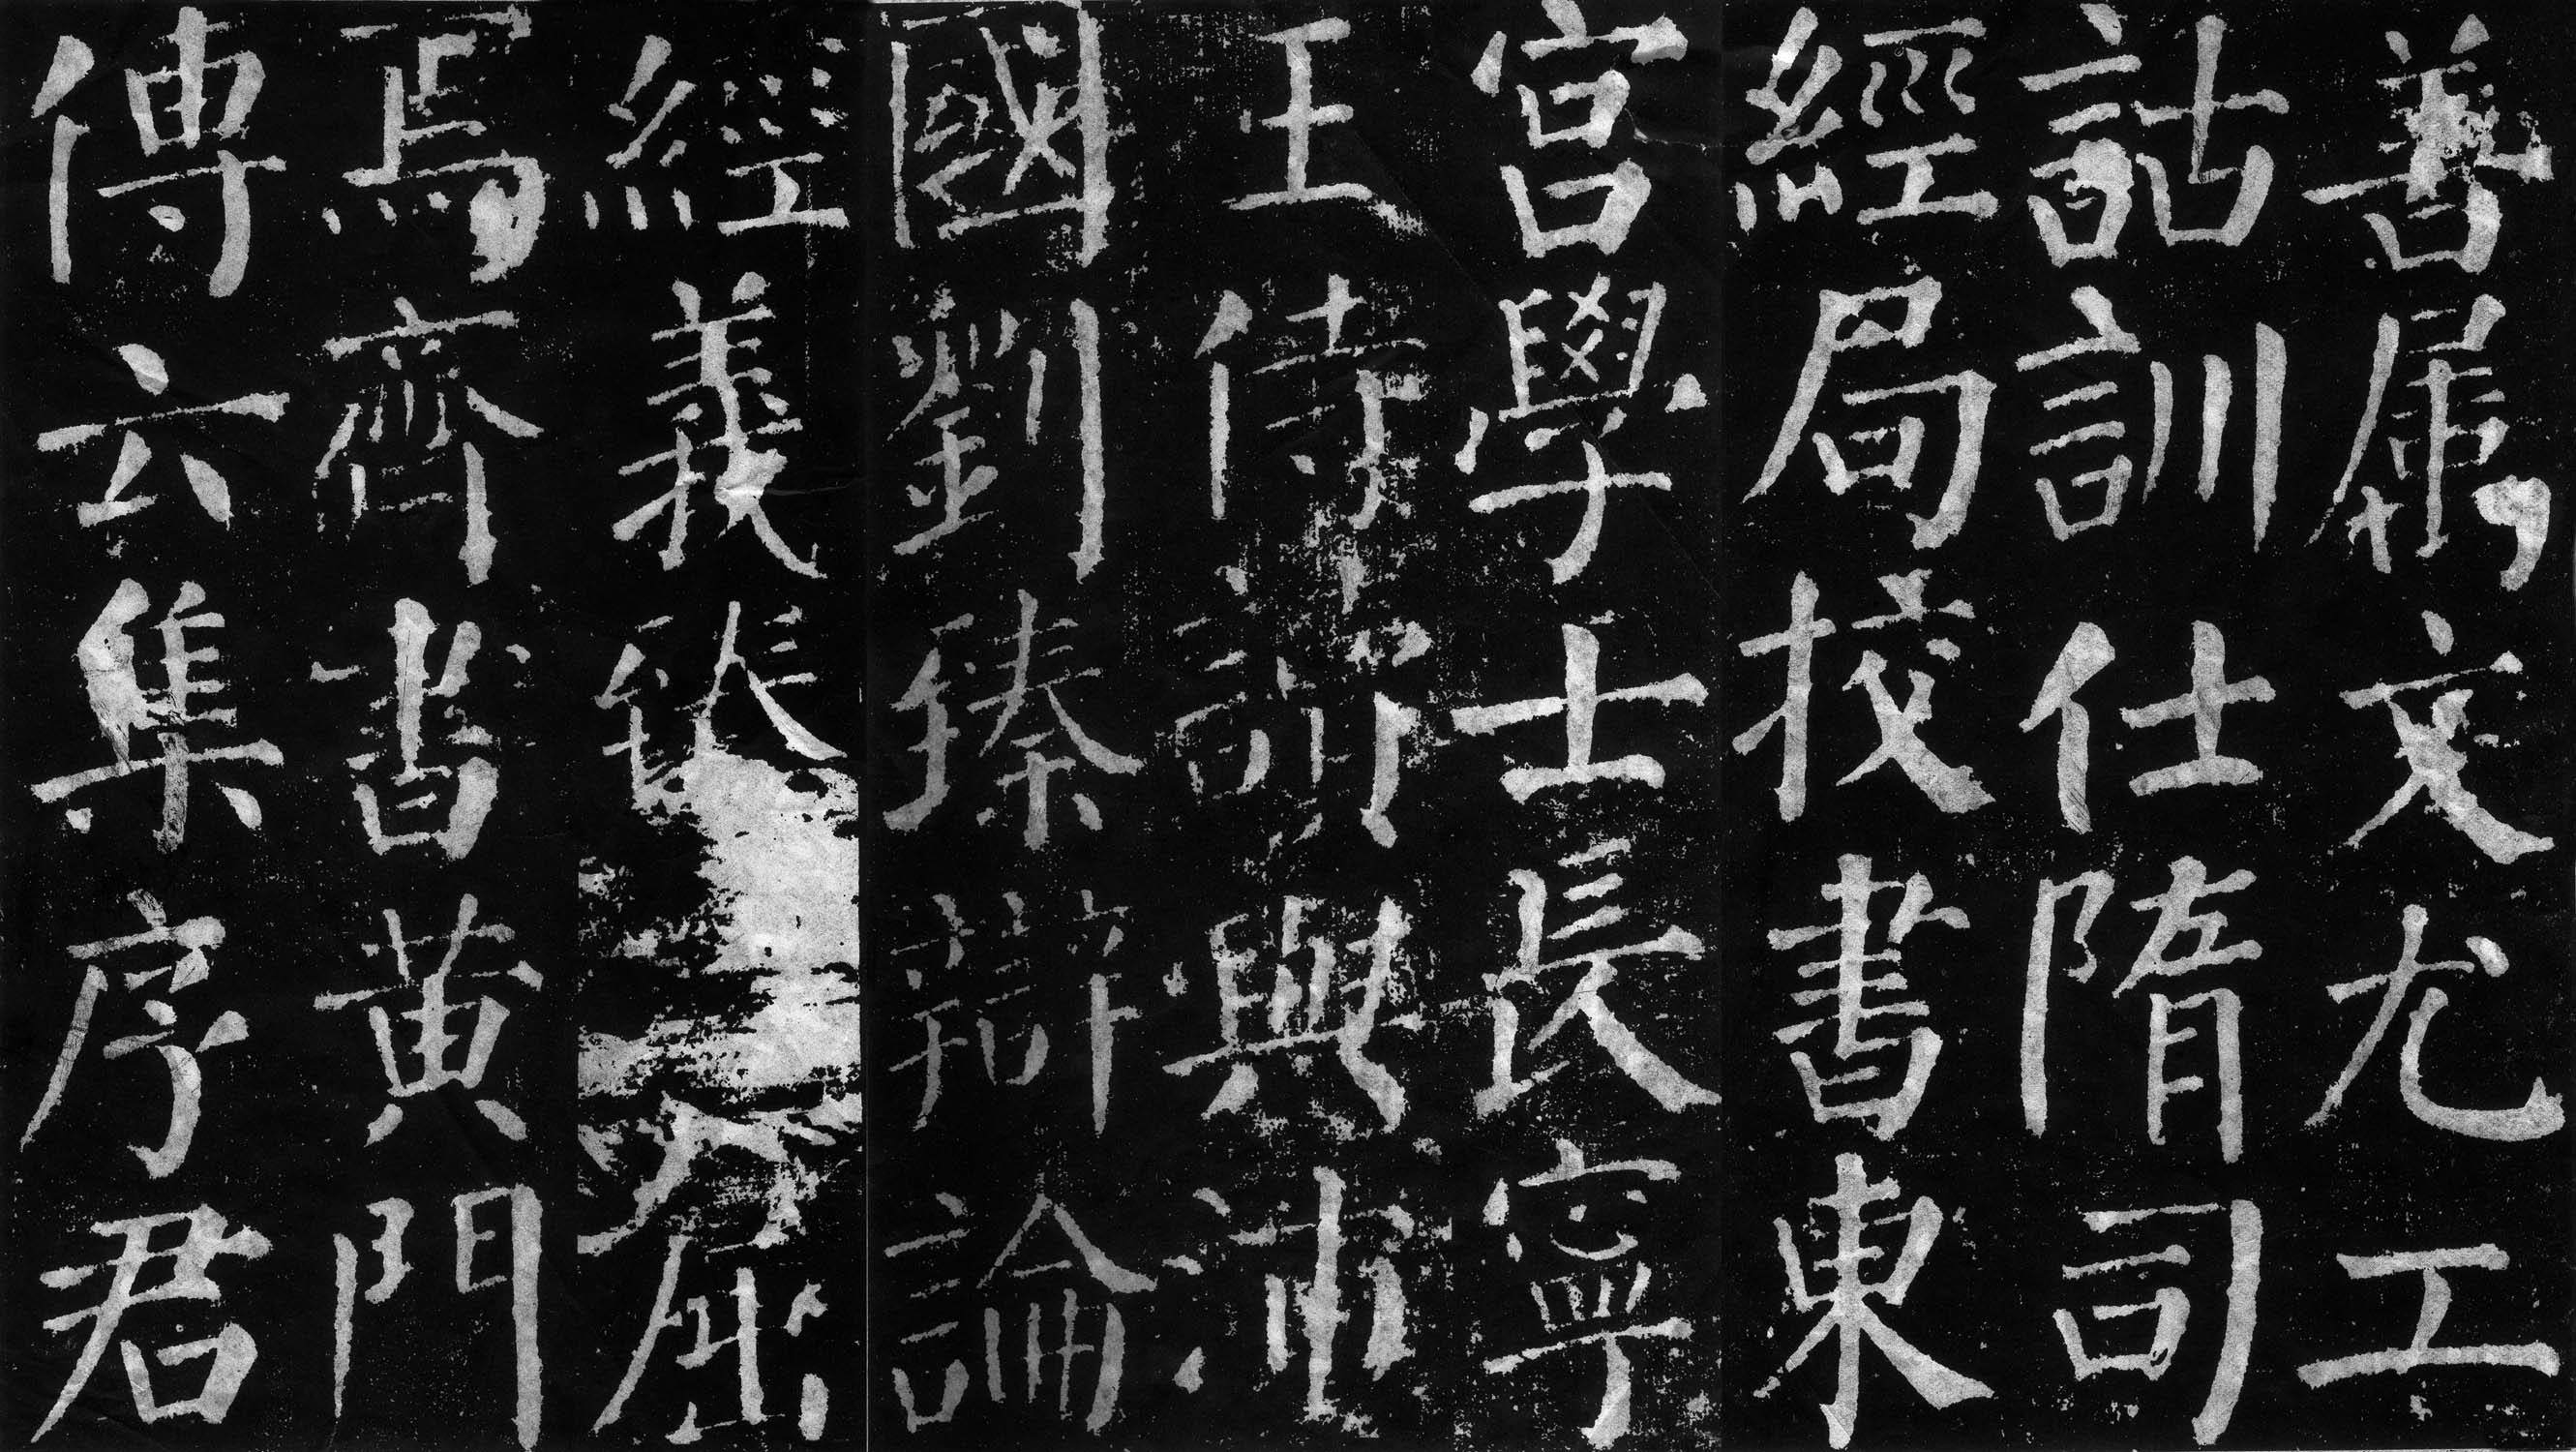 善属文尤工
詁訓仕隋司
經局挍書東
宮學士長寧
王侍讀與沛
國劉臻辯論
經義臻屈
焉齊書黃門
傳云集序君